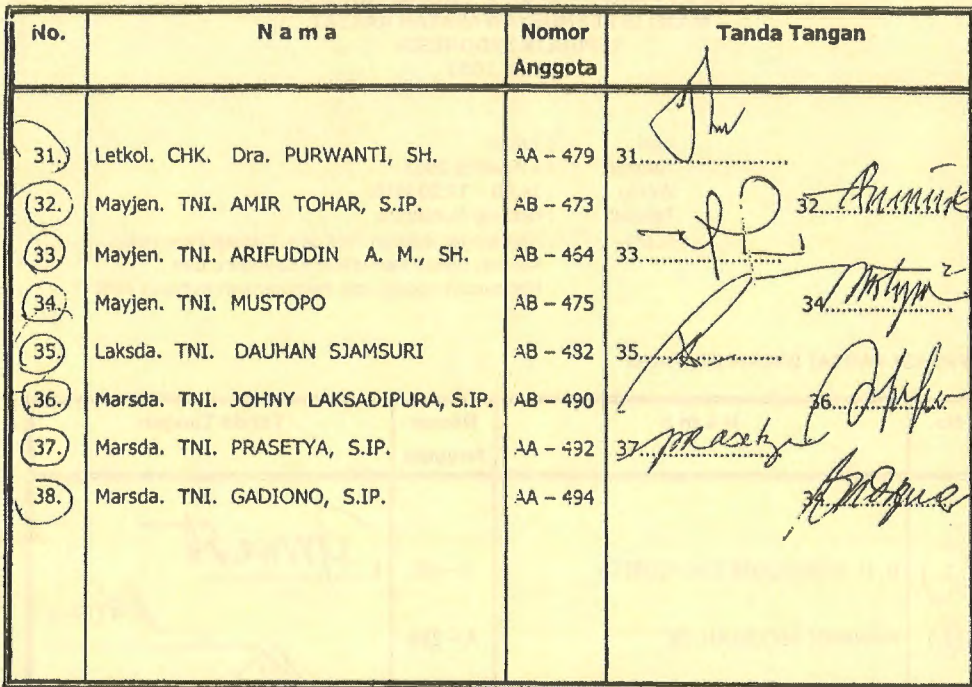 No. N a m a Nomor Anggota Tanda Tangan
31.) Letkol. CHK. Dra. PURWANTI, SH. AA – 479 31..................
32.) Mayjen. TNI. AMIR TOHAR, S.IP. AB – 473 32
33.) Mayjen. TNI. ARIFUDDIN A. M., SH. AB – 464 33..................
34.) Mayjen. TNI. MUSTOPO AB – 475 34..................
35.) Laksda. TNI. DAUHAN SJAMSURI AB – 482 35..................
36.) Marsda. TNI. JOHNY LAKSADIPURA, S.IP. AB – 490 36..................
37.) Marsda. TNI. PRASETYA, S.IP. AA – 492 37 prasetya
38.) Marsda. TNI. GADIONO, S.IP. AA – 494